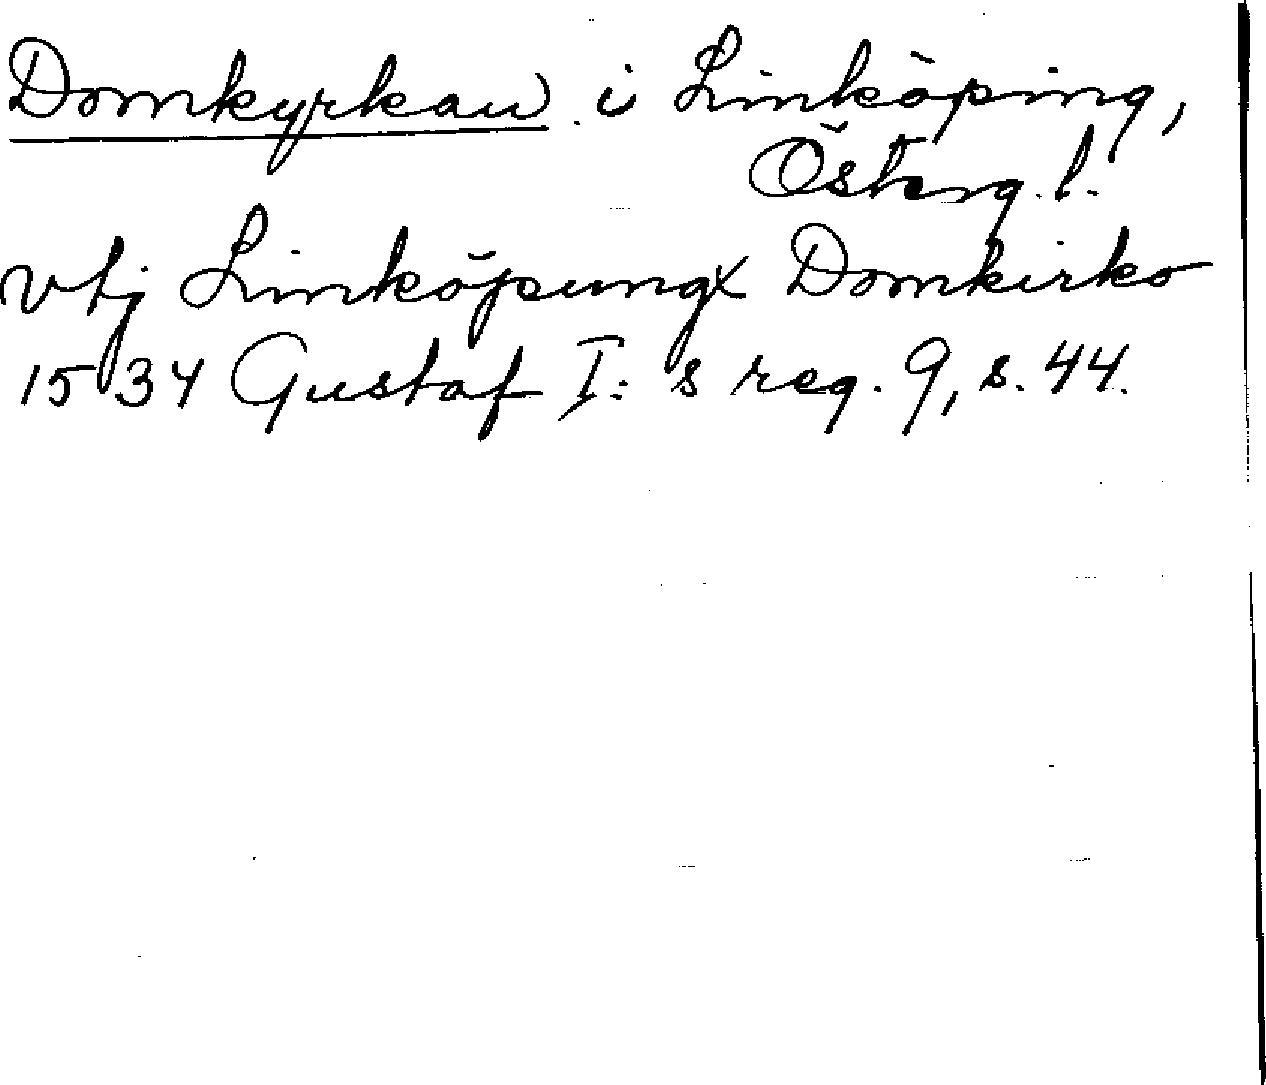 Domkyrkan i Linköping,
Österg. l.
vtj Linköpungx Domkirko
1534 Gustaf I:s reg. 9, s. 44.